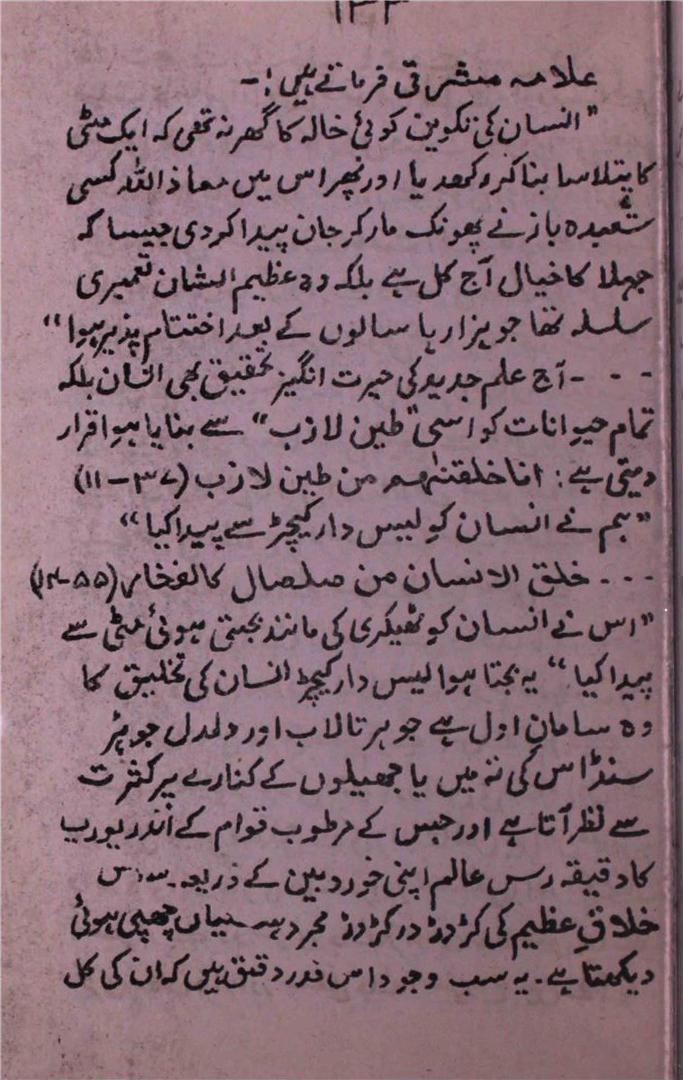 ۱۳۳
علامہ مشرقی فرماتے ہیں؛-
"انسان کی تکوین کوئی خالہ کا گھر نہ تھی کہ ایک مٹی
کا پتلا سا بنا کر رکھ دیا اور پھر اس میں معاذ اللہ کسی
شعبدہ باز نے پھونک مار کر جان پیدا کر دی جیسا کہ
جہلا کا خیال آج کل ہے بلکہ وہ عظیم الشان تعمیری
سلسلہ تھا جو ہزارہا سالوں کے بعد اختتام پذیر ہوا"
- - - آج علم جدید کی حیرت انگیز تحقیق بھی انسان بلکہ
تمام حیوانات کو اسی "طین لازب" سے بنایا ہوا قرار
دیتی ہے: انا خلقنٰہم من طین لازب (۳۷-۱۱)
"ہم نے انسان کو لیس دار کیچڑ سے پیدا کیا"
... خلق الانسان من صلصال کالفخار (۵۵-۱۴)
"اس نے انسان کو ٹھیکری کی مانند بجتی ہوئی مٹی سے
پیدا کیا" یہ بجتا ہوا لیس دار کیچڑ انسان کی تخلیق کا
وہ سامانِ اول ہے جو ہر تالاب اور دلدل جوہڑ
سنڈاس کی تہ میں یا جھیلوں کے کنارے پر کثرت
سے نظر آتا ہے اور جس کے مرطوب قوام کے اندر یورپ
کا دقیقہ رس عالم اپنی خوردبین کے ذریعہ سے اس
خلاقِ عظیم کی کڑوڑ در کڑوڑ مجرد ہستیاں چھپی ہوئی
دیکھتا ہے۔ یہ سب وجود اس قدر دقیق ہیں کہ ان کی کل